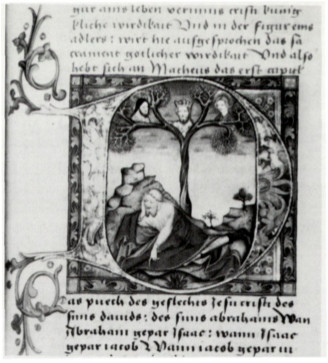 gar ains leben vermuns cristi kunig
kliche wirdikait Und in der figur eins
adlers : wirt hie aufgesprochen das sa
crament gotlicher wirdikait Und also
hebt sich an Matheus das erst capitel
Das puech des geslechts Jesu cristi des
suns davids : des suns abrahams Wan
Abraham gepar Isaac : wann Isaac
gepar iacob Wann iacob gepar iu